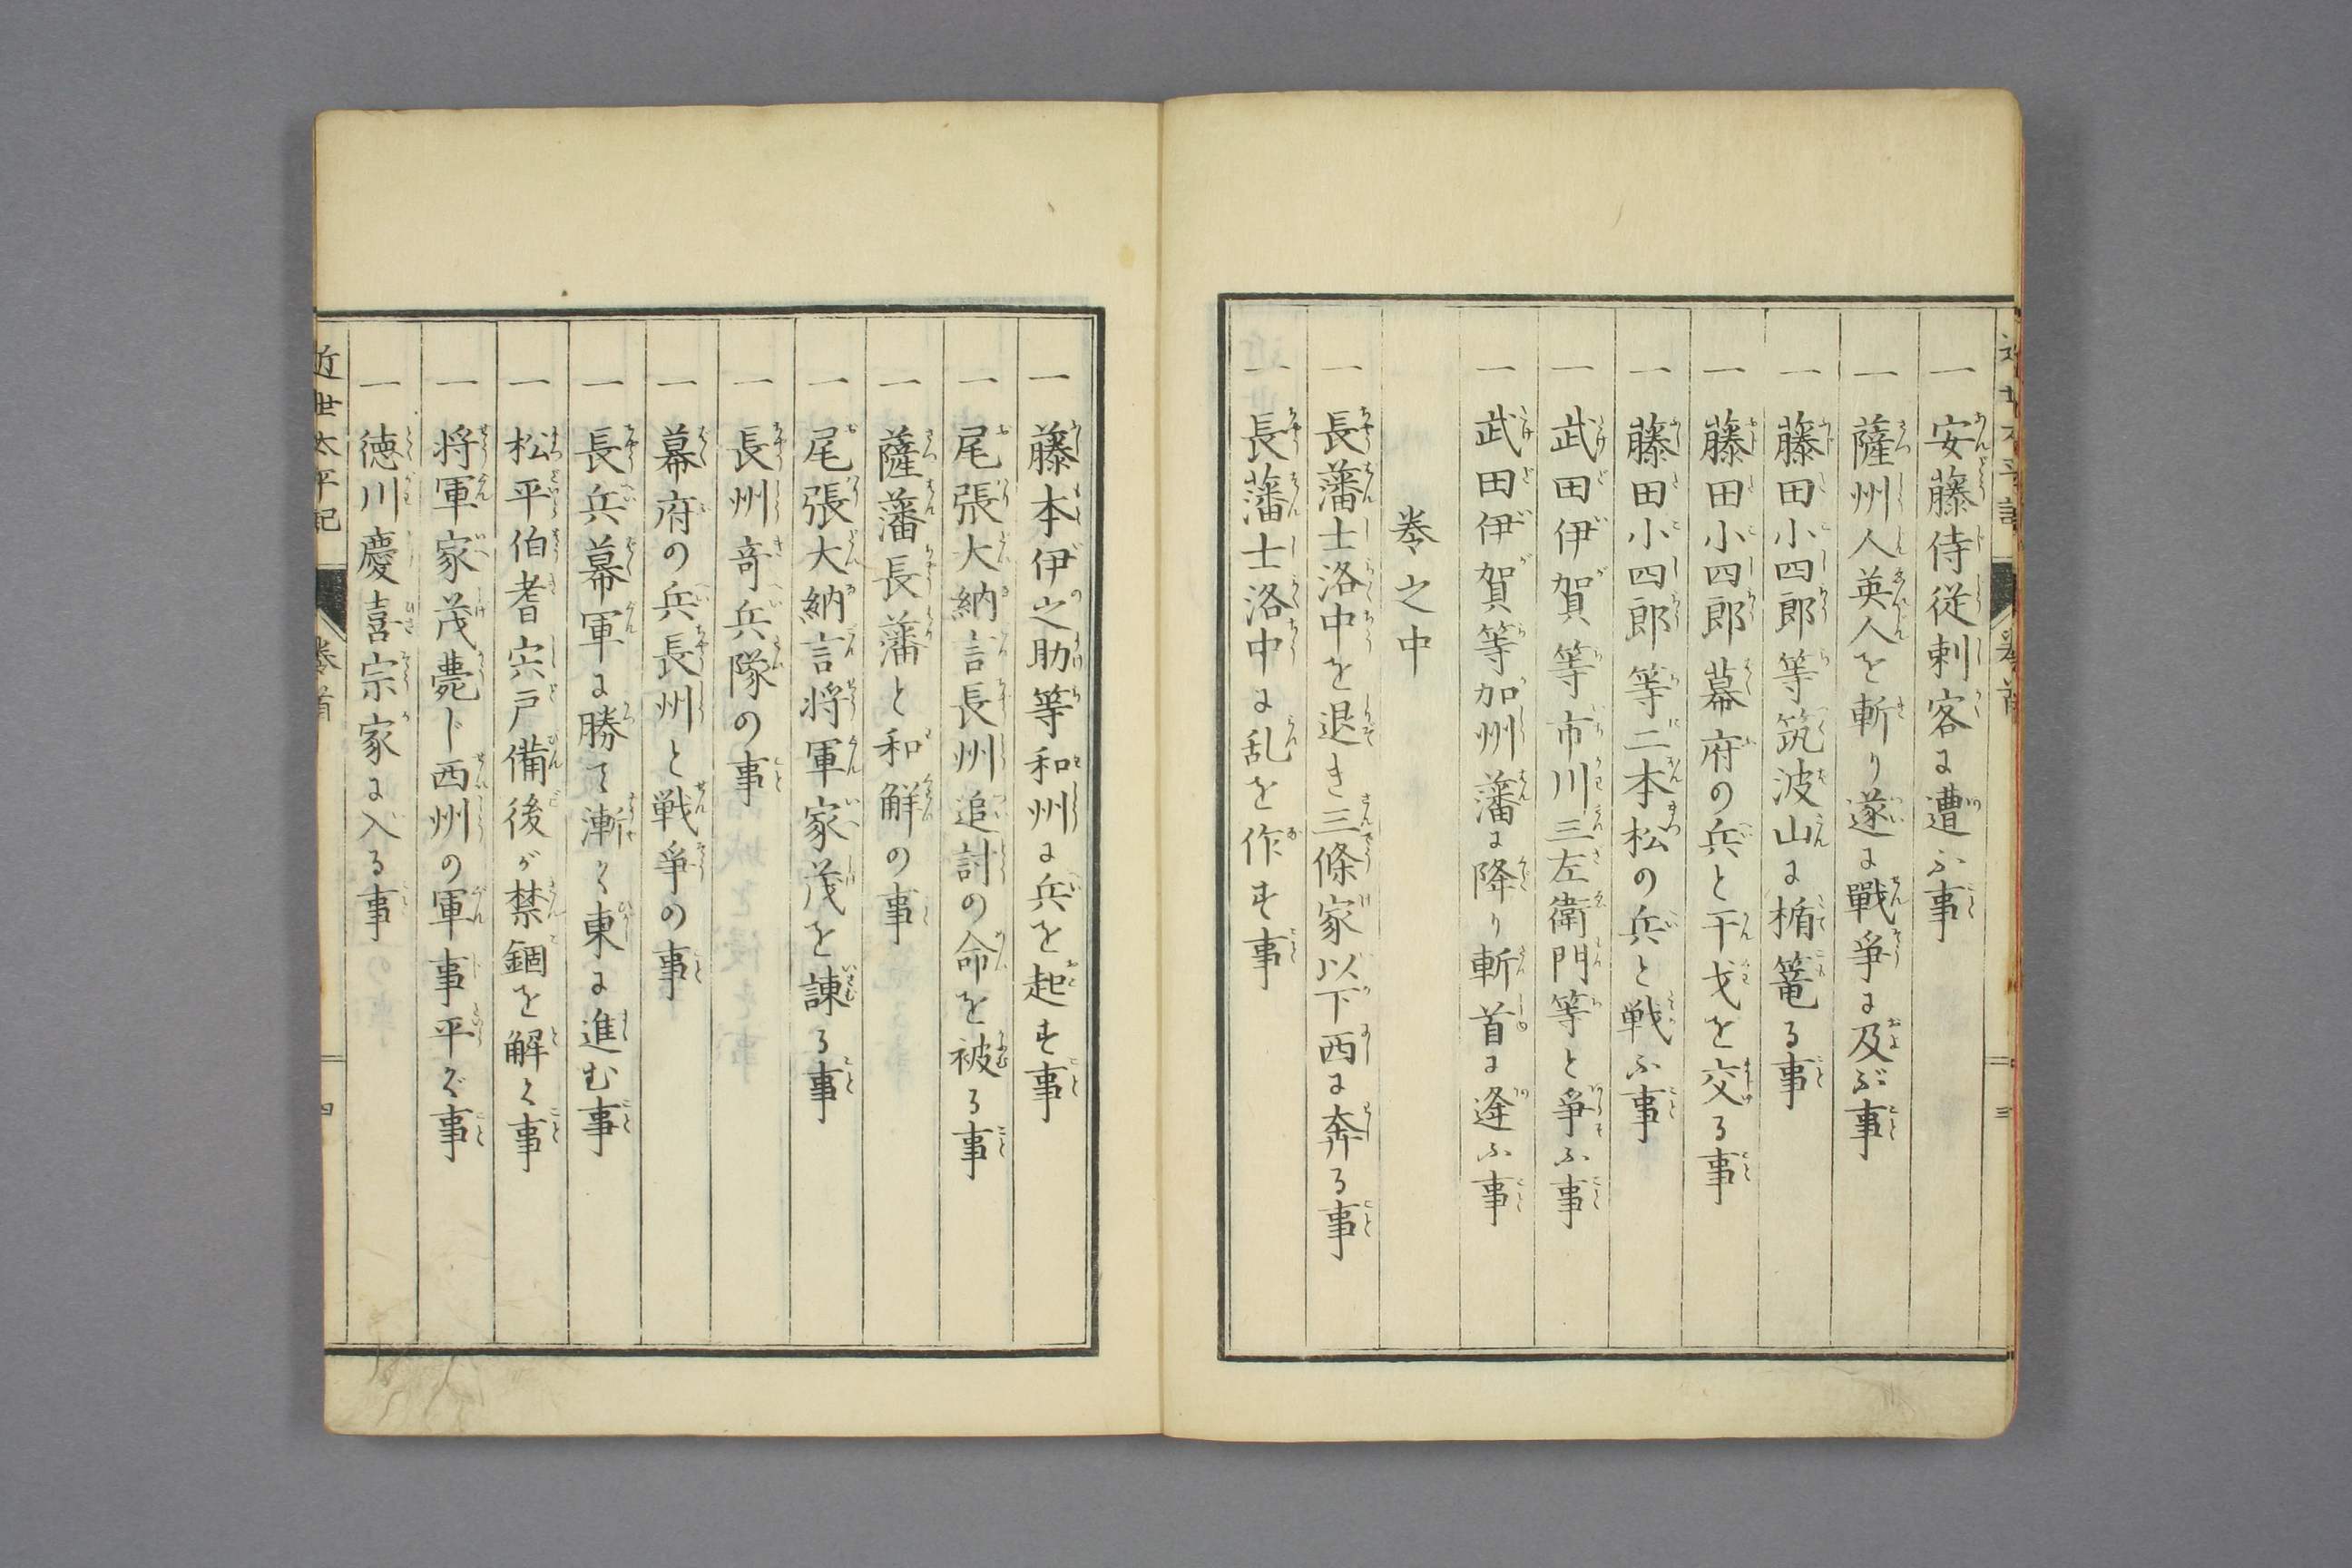 一 安藤侍従刺客に遭ふ事
一 薩州人英人を斬り遂に戰爭に及ぶ事
一 藤田小四郎等筑波山に楯篭る事
一 藤田小四郎幕府の兵と干戈を交る事
一 藤田小四郎等二本松の兵と戦ふ事
一 武田伊賀等市川三左衛門等と爭ふ事
一 武田伊賀等加州藩に降り斬首に逢ふ事
巻之中
一 長藩士洛中を退き三條家以下西に奔る事
一 長藩士洛中に乱を作す事
一 藤本伊之助等和州に兵を起す事
一 尾張大納言長州追討の命を被る事
一 薩藩長藩と和解の事
一 尾張大納言将軍家茂を諌る事
一 長州竒兵隊の事
一 幕府の兵長州と戦爭の事
一 長兵幕軍に勝て漸く東に進む事
一 松平伯耆宍戸備後が禁錮を解く事
一 将軍家茂薨じ西州の軍事平ぐ事
一 徳川慶喜宗家に入る事
近世太平記 巻首 四